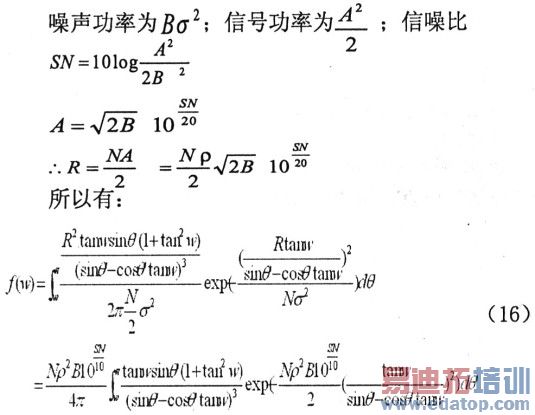 噪声功率为Bσ²；信号功率为A²/2；信噪比
SN=10log A²/2B ²
A=√2B 10^(SN/20)
∴R=NA/2 =Nρ/2 √2B 10^(SN/20)
所以有：
f(w)=∫ (R²tanwsinθ(1+tan²w)/(sinθ-cosθtanw)³)/(2π N/2 σ²) exp(-(Rtanw/(sinθ-cosθtanw))²/Nσ²)dθ
（16）
=Nρ²B10^(SN/10)/4π ∫ tanwsinθ(1+tan²w)/(sinθ-cosθtanw)³ exp(-Nρ²B10^(SN/10)/2 (tanw/(sinθ-cosθtanw))²)dθ
易迪拓培训
www.edatop.com